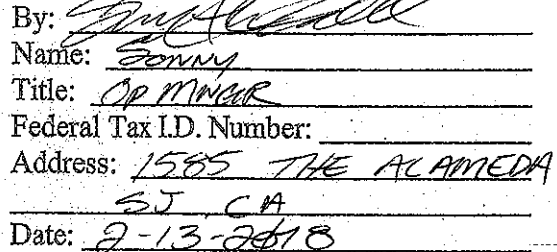 By:
Name: Sonny
Title: OP MNGR
Federal Tax I.D. Number:
Address: 1585 THE ALAMEDA
SJ, CA
Date: 2-13-2018